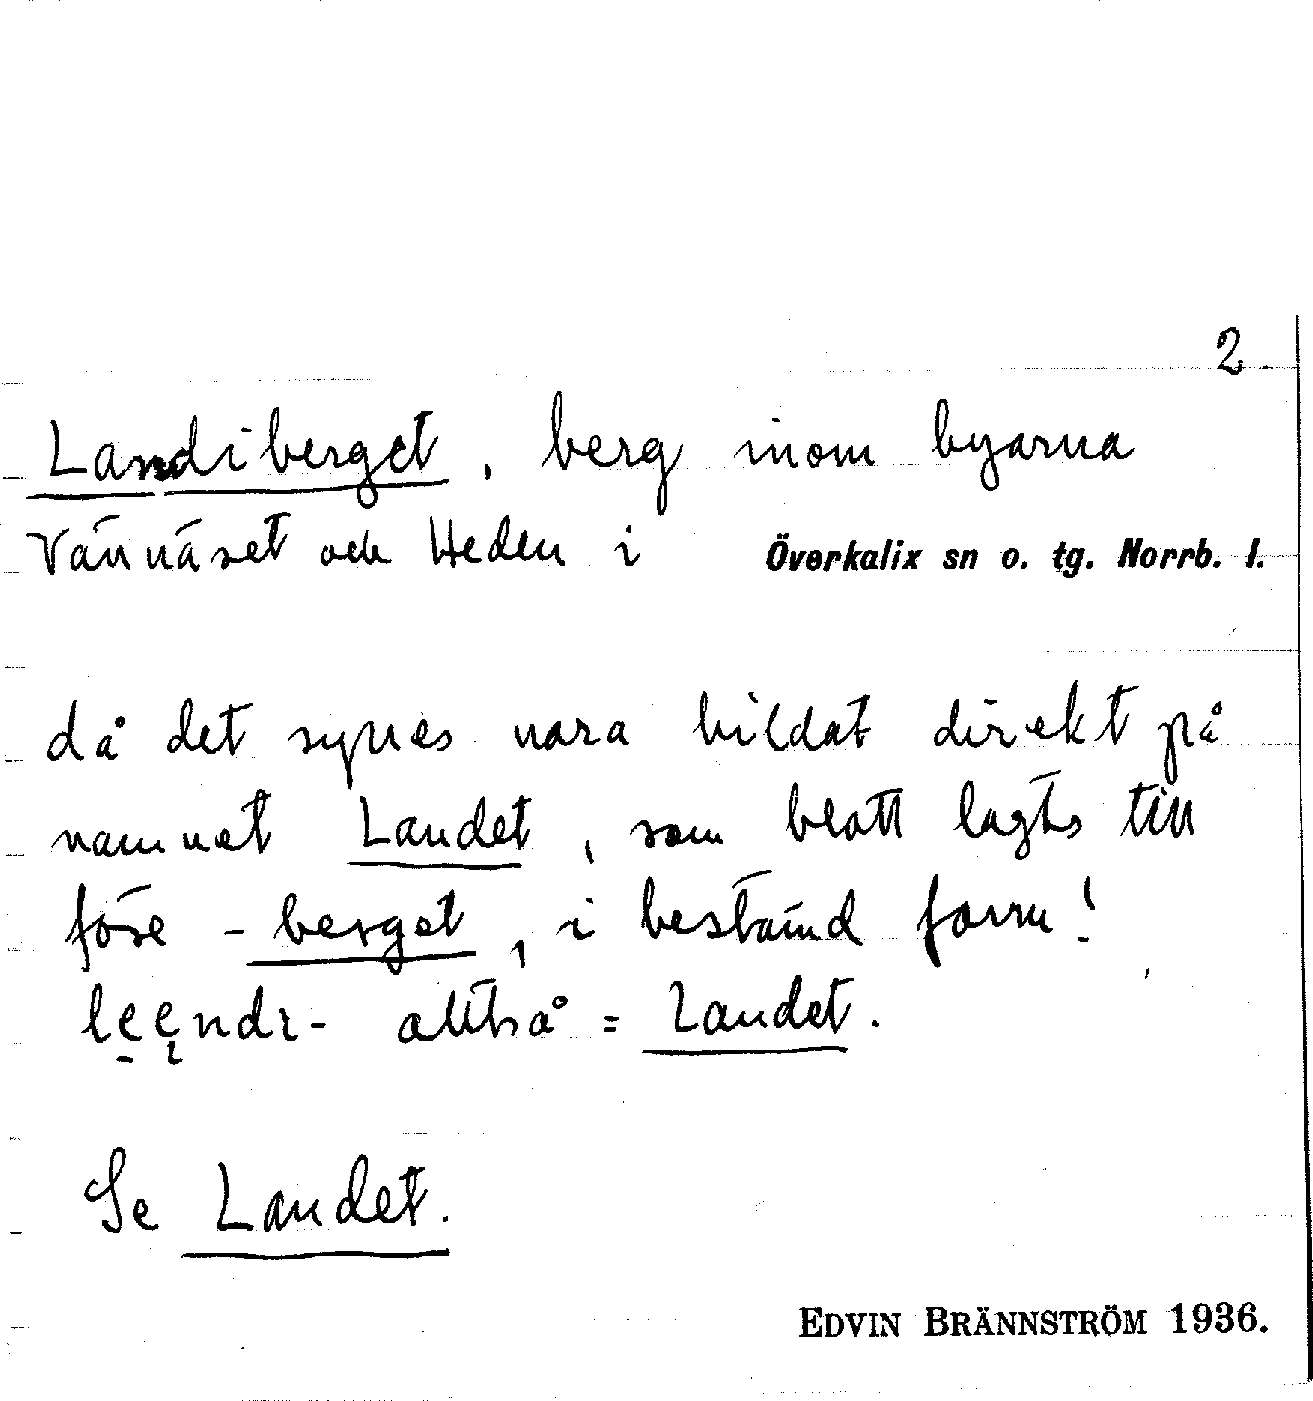 2.
Landiberget, berg inom byarna
Vännäset och Heden i Överkalix sn o. tg. Norrb. l.
då det synes vara bildat direkt på
namnet Landet, som blott lagts till
före -berget, i bestämd form!
alltså = Landet.
Se Landet.
EDVIN BRÄNNSTRÖM 1936.